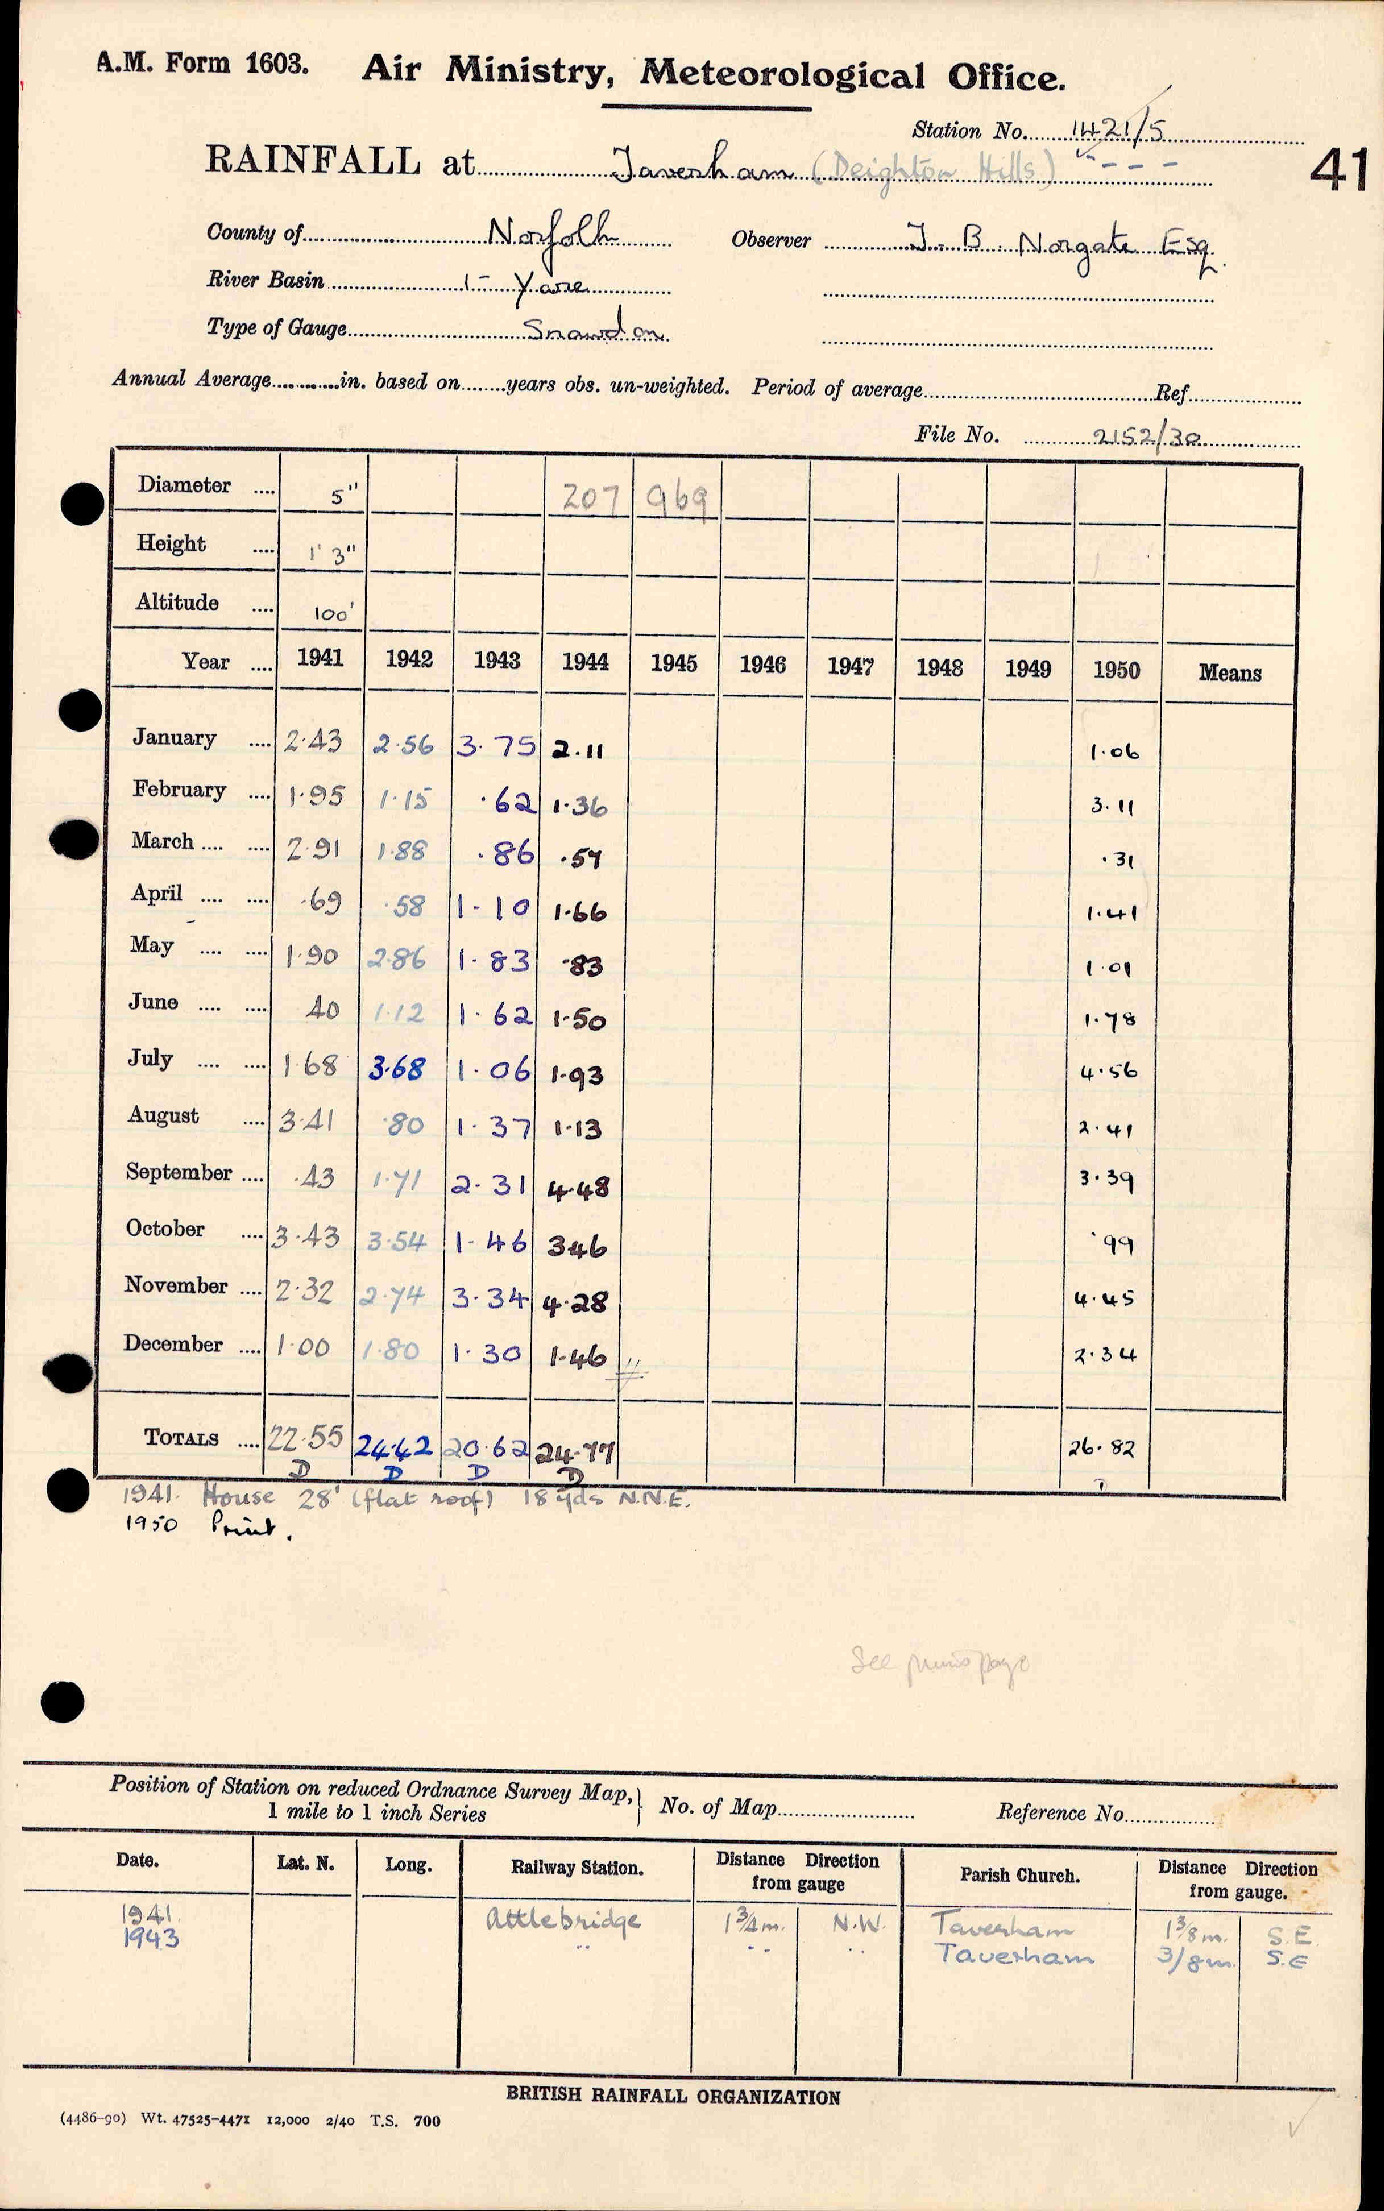 A.M. Form 1603. Air Ministry, Meteorological Office.
Station No. 1421/5
RAINFALL at Taverham (Deighton Hills)
41
County of Norfolk Observer J. B. Norgate Esq.
River Basin 1- Yare
Type of Gauge Snowdon
Annual Average in. based on years obs. un-weighted. Period of average Ref.
File No. 2152/30
Diameter 5" 207 969
Height 1' 3"
Altitude 100'
Year 1941 1942 1943 1944 1945 1946 1947 1948 1949 1950 Means
January 2.43 2.56 3.75 2.11 1.06
February 1.95 1.15 .62 1.36 3.11
March 2.91 1.88 .86 .57 .31
April .69 .58 1.10 1.66 1.41
May 1.90 2.86 1.83 .83 1.01
June .40 1.12 1.62 1.50 1.78
July 1.68 3.68 1.06 1.93 4.56
August 3.41 .80 1.37 1.13 2.41
September .43 1.71 2.31 4.48 3.39
October 3.43 3.54 1.46 346 .99
November 2.32 2.74 3.34 4.28 4.45
December 1.00 1.80 1.30 1.46 2.34
TOTALS 22.55 24.42 20.62 24.77 26.82
D D D D D
1941. House 28' (flat roof) 18 yds N.N.E.
1950 Print.
See page
Position of Station on reduced Ordnance Survey Map,
1 mile to 1 inch Series
No. of Map Reference No.
Date. Lat. N. Long. Railway Station. Distance Direction from gauge Parish Church. Distance Direction from gauge.
1941. Attlebridge 1 3/4 m. N.W. Taverham 1 3/8 m. S.E.
1943 " " " Taverham 3/8 m. S.E
BRITISH RAINFALL ORGANIZATION
(4486-90) Wt. 47525-4471 12,000 2/40 T.S. 700